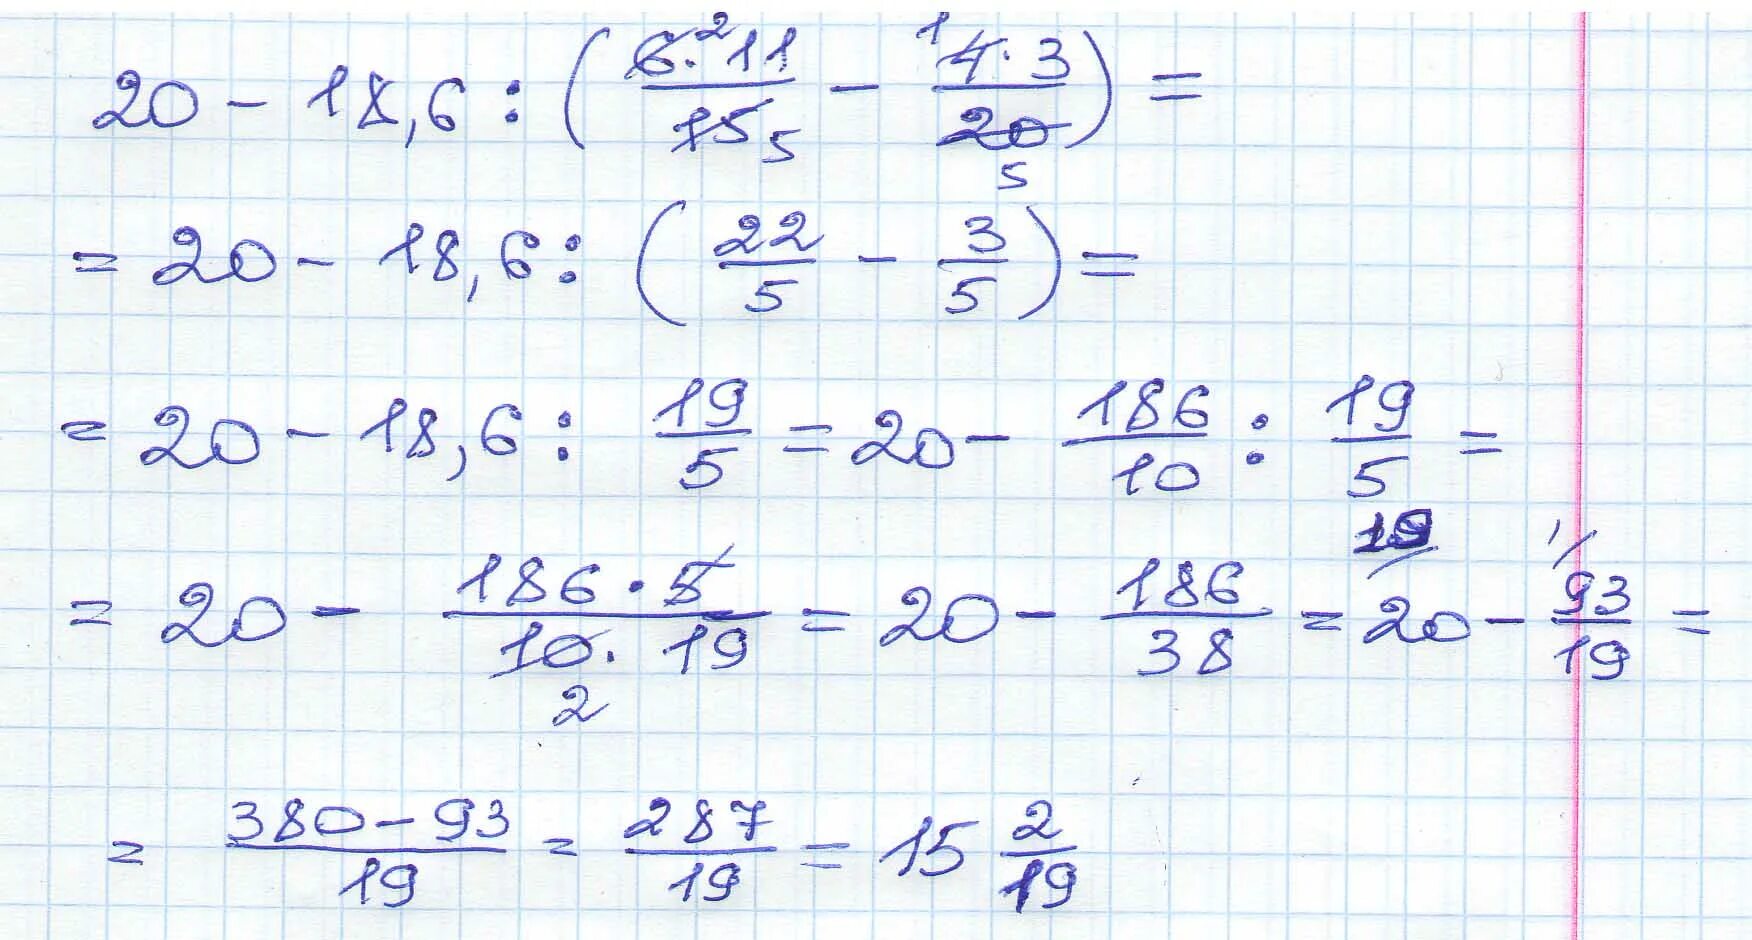 20 - 18,6 : (6·11/15 - 4·3/20) =
= 20 - 18,6 : (22/5 - 3/5) =
= 20 - 18,6 : 19/5 = 20 - 186/10 : 19/5 =
= 20 - 186·5/10·19 = 20 - 186/38 = 20 - 93/19 =
= 380-93/19 = 287/19 = 15 2/19